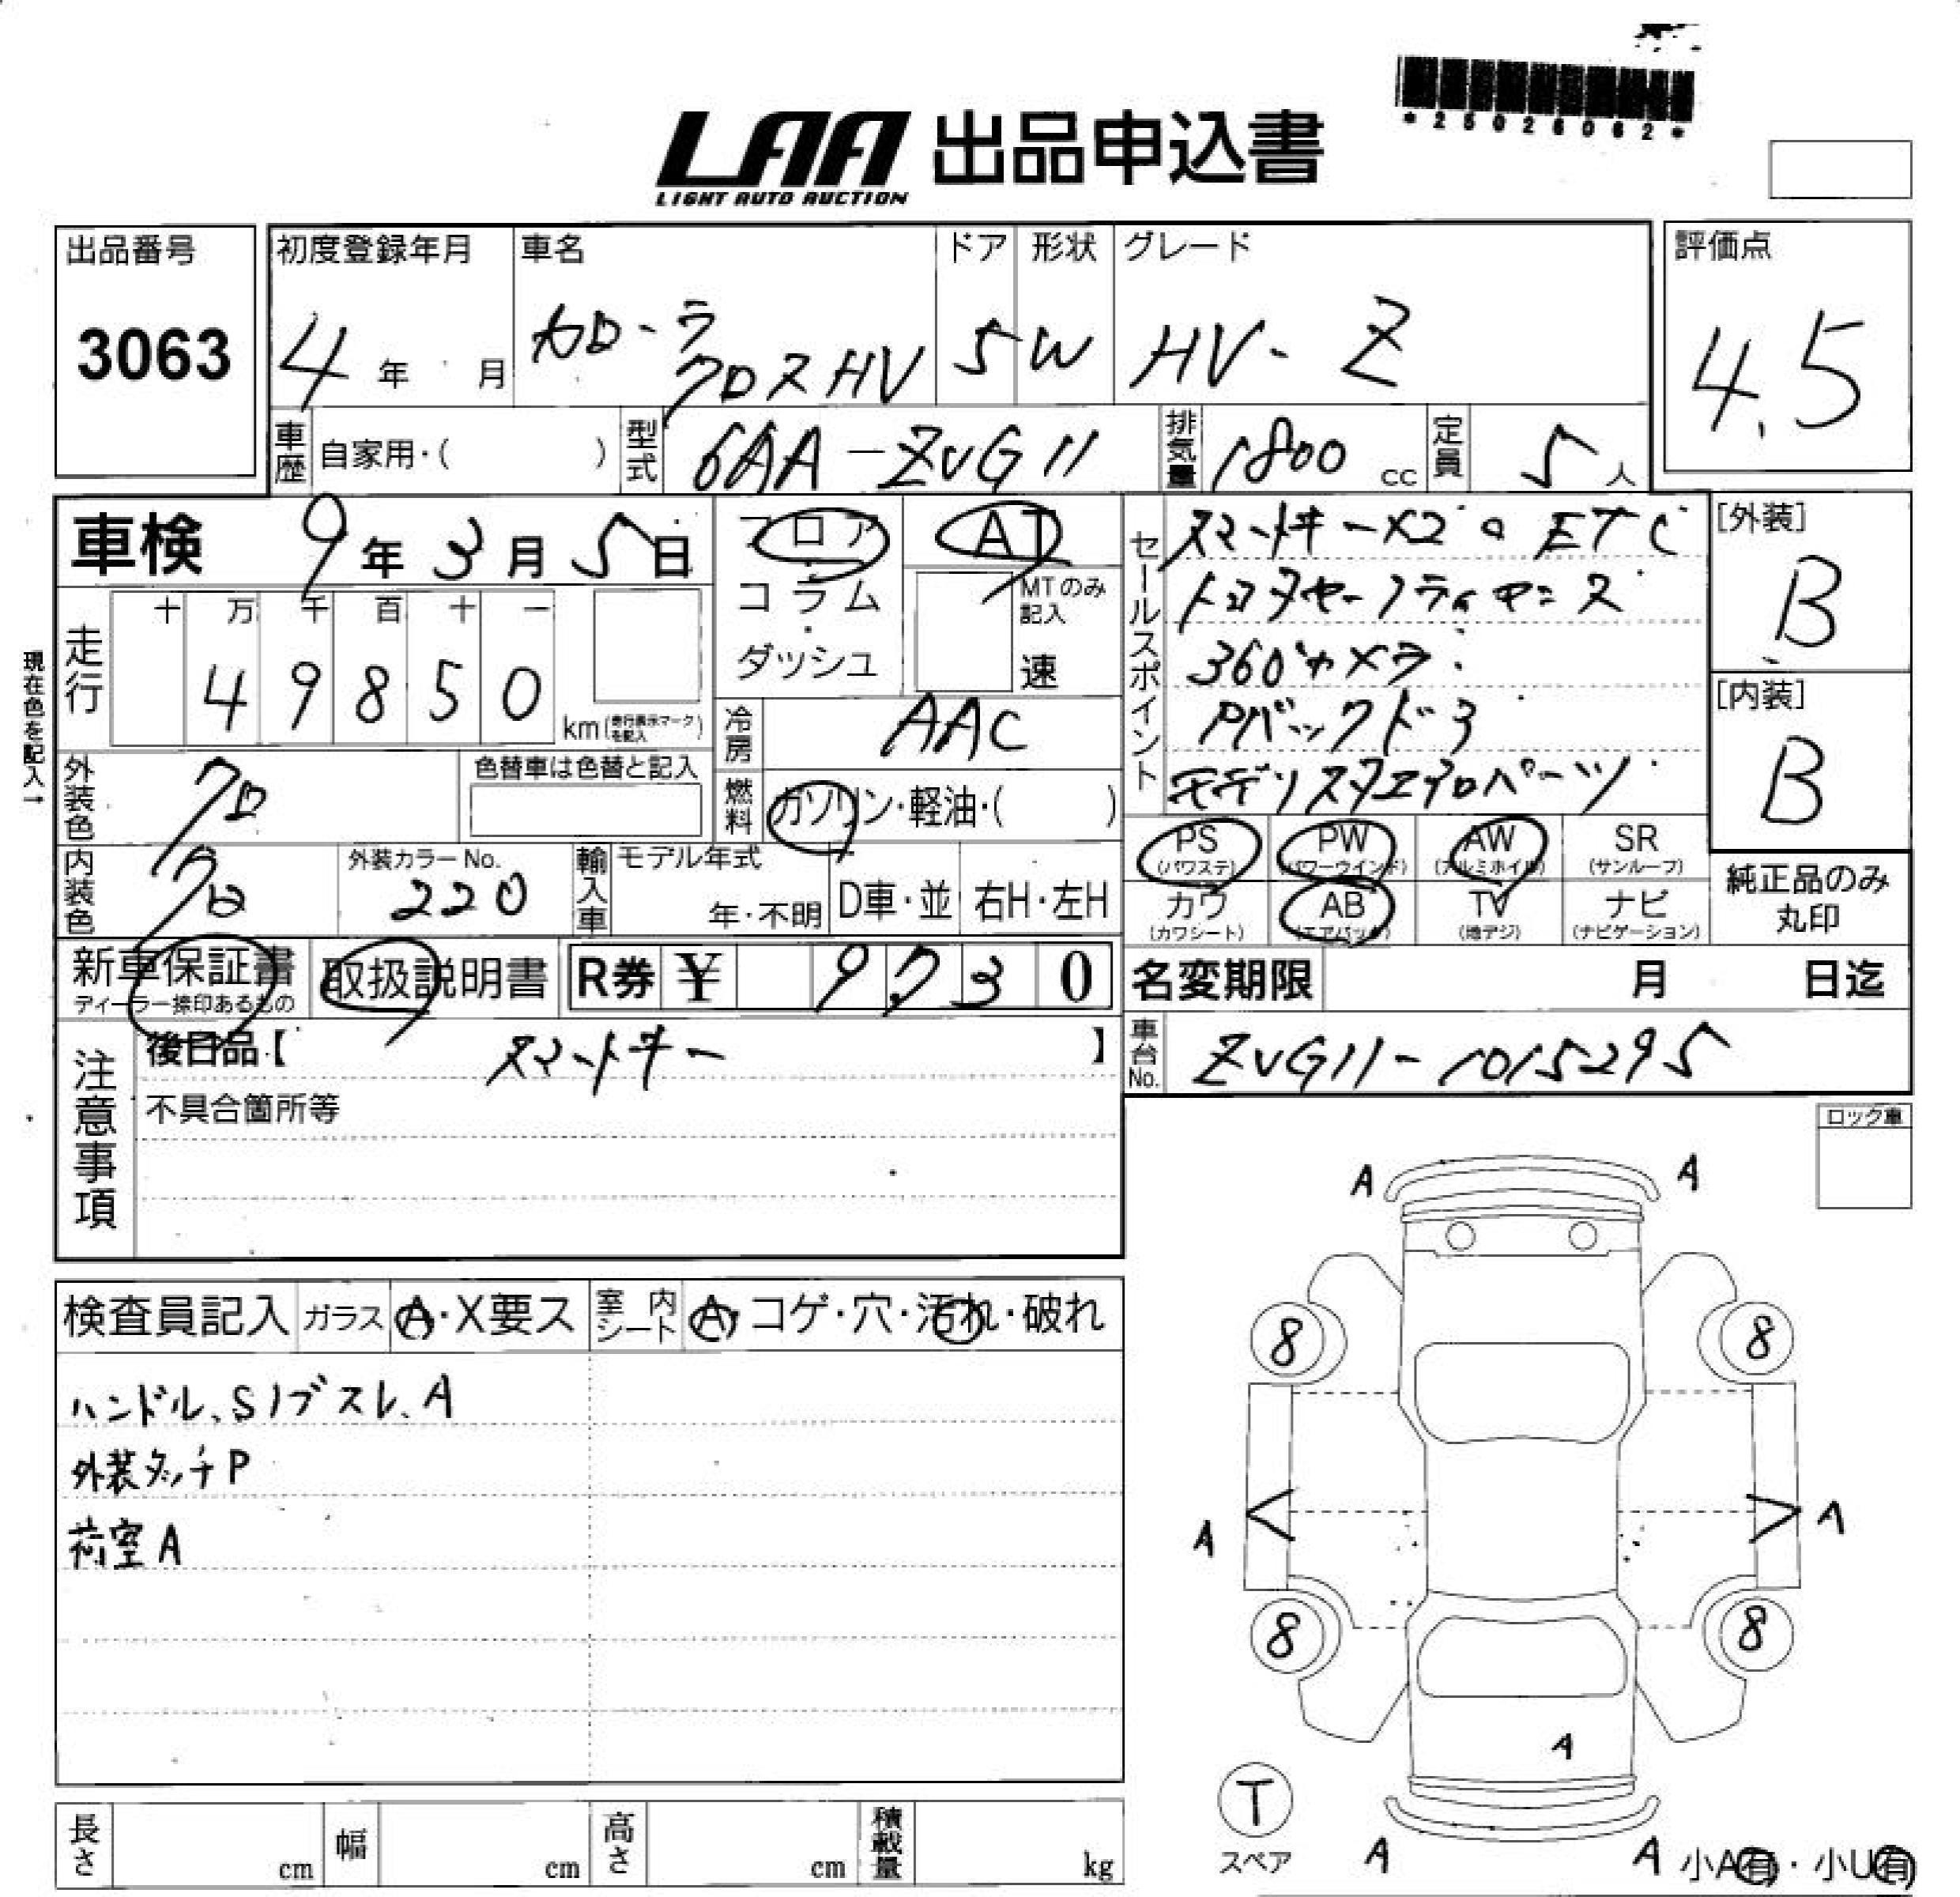 *25026062*
LAA 出品申込書
LIGHT AUTO AUCTION
出品番号
3063
初度登録年月
4年 月
車名
カローラ
クロスHV
ドア
5
形状
W
グレード
HV-Z
評価点
4.5
車歴 自家用・( )
型式 6AA-ZVG11
排気量 1800 cc
定員 5人
車検 9年3月5日
フロア
コラム
・
ダッシュ
AT
MTのみ記入
速
セールスポイント
スマートキー×2。ETC
360°カメラ
Pバックドア
モデリスタエアロパーツ
[外装]
B
[内装]
B
現在色を記入→
走行
十 万 千 百 十 一
4 9 8 5 0
km(走行表示マークを記入)
冷房 AAC
外装色 クロ
色替車は色替と記入
燃料 ガソリン・軽油・( )
内装色 クロ
外装カラーNo.
220
輸入車
モデル年式
年・不明
D車・並
右H・左H
PS
(パワステ)
PW
(パワーウインド)
AW
(アルミホイル)
SR
(サンルーフ)
カワ
(カワシート)
AB
(エアバック)
TV
(地デジ)
ナビ
(ナビゲーション)
純正品のみ
丸印
新車保証書
ディーラー捺印あるもの
取扱説明書
R券 ¥ 9,730
名変期限 月 日迄
注意事項
後日品【 スマートキー 】
不具合箇所等
車台No. ZVG11-1015295
ロック車
検査員記入
ガラス A・X要ス
室内シート A・コゲ・穴・汚れ・破れ
ハンドル、Sノブスレ、A
外装タッチP
荷室A
A A
8 8
A A
8 8
A
T
スペア
A A
小A有・小U有
長さ cm
幅 cm
高さ cm
積載量 kg